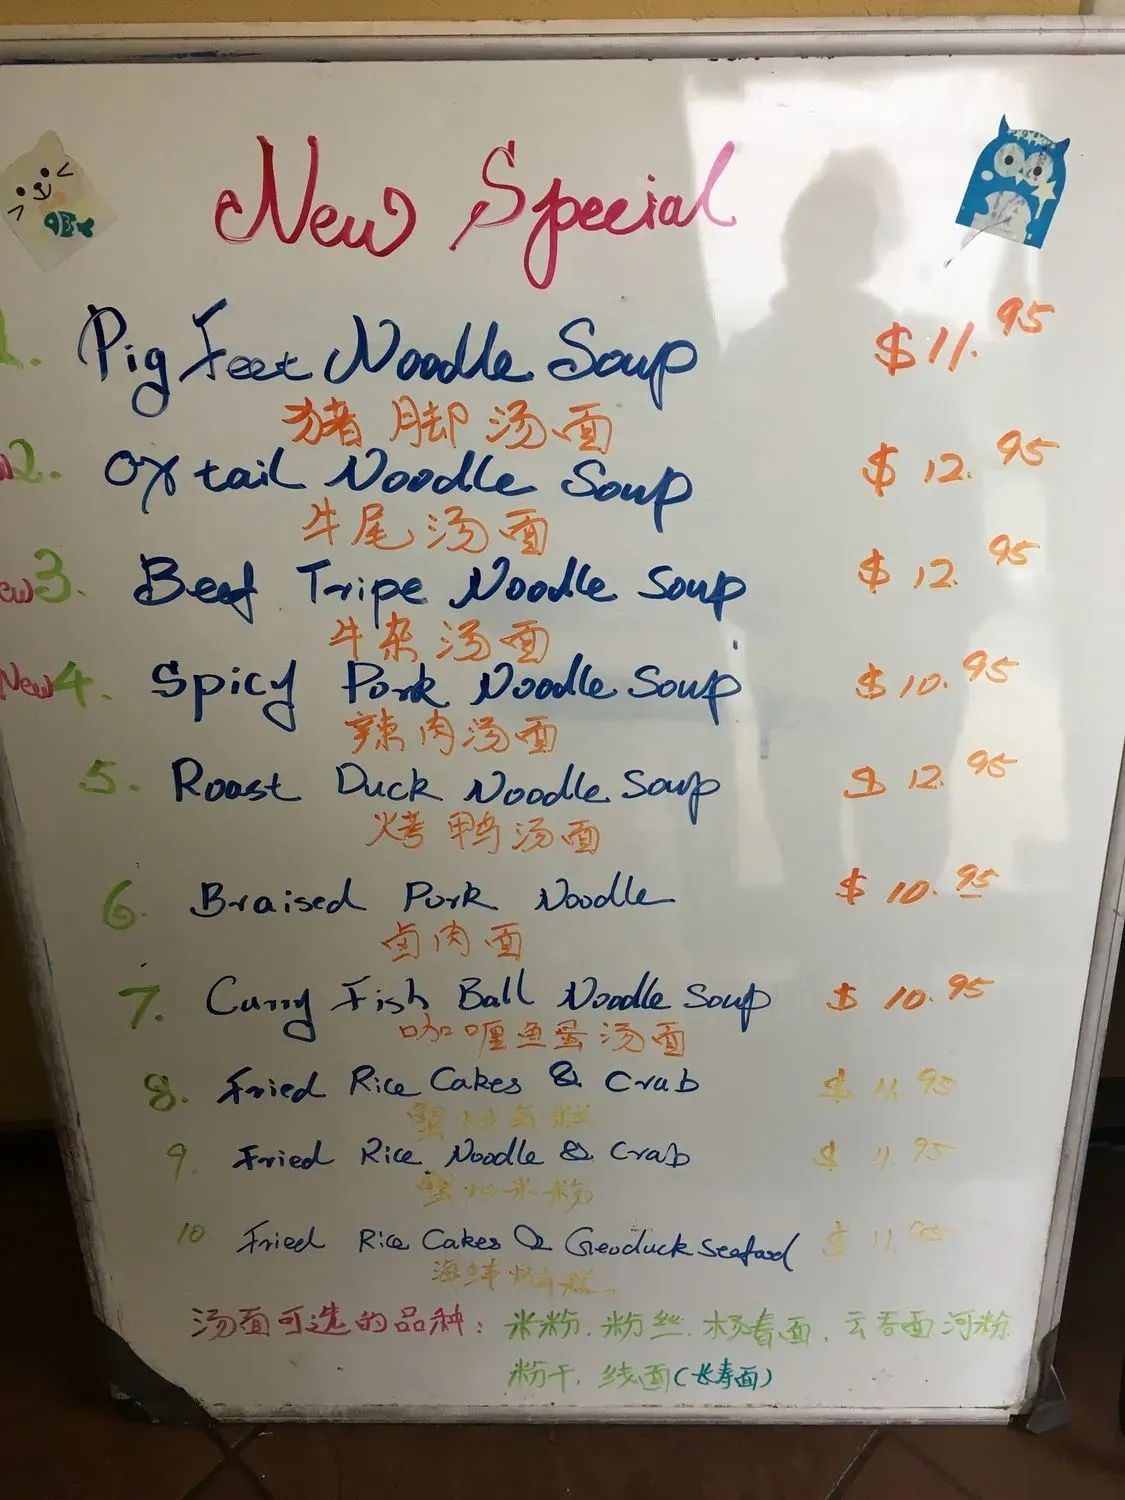 New Special
1. Pig Feet Noodle Soup $11.95
猪脚汤面
2. Oxtail Noodle Soup $12.95
牛尾汤面
ew 3. Beef Tripe Noodle Soup $12.95
牛杂汤面
New 4. Spicy Pork Noodle Soup $10.95
辣肉汤面
5. Roast Duck Noodle Soup $12.95
烤鸭汤面
6. Braised Pork Noodle $10.95
卤肉面
7. Curry Fish Ball Noodle Soup $10.95
咖喱鱼蛋汤面
8. Fried Rice Cakes & Crab $11.95
蟹炒年糕
9. Fried Rice Noodle & Crab $11.95
蟹炒米粉
10 Fried Rice Cakes & Geoduck Seafood $11.95
海蚌炒年糕
汤面可选的品种: 米粉. 粉丝. 杨春面. 云吞面 河粉
粉干. 线面(长寿面)